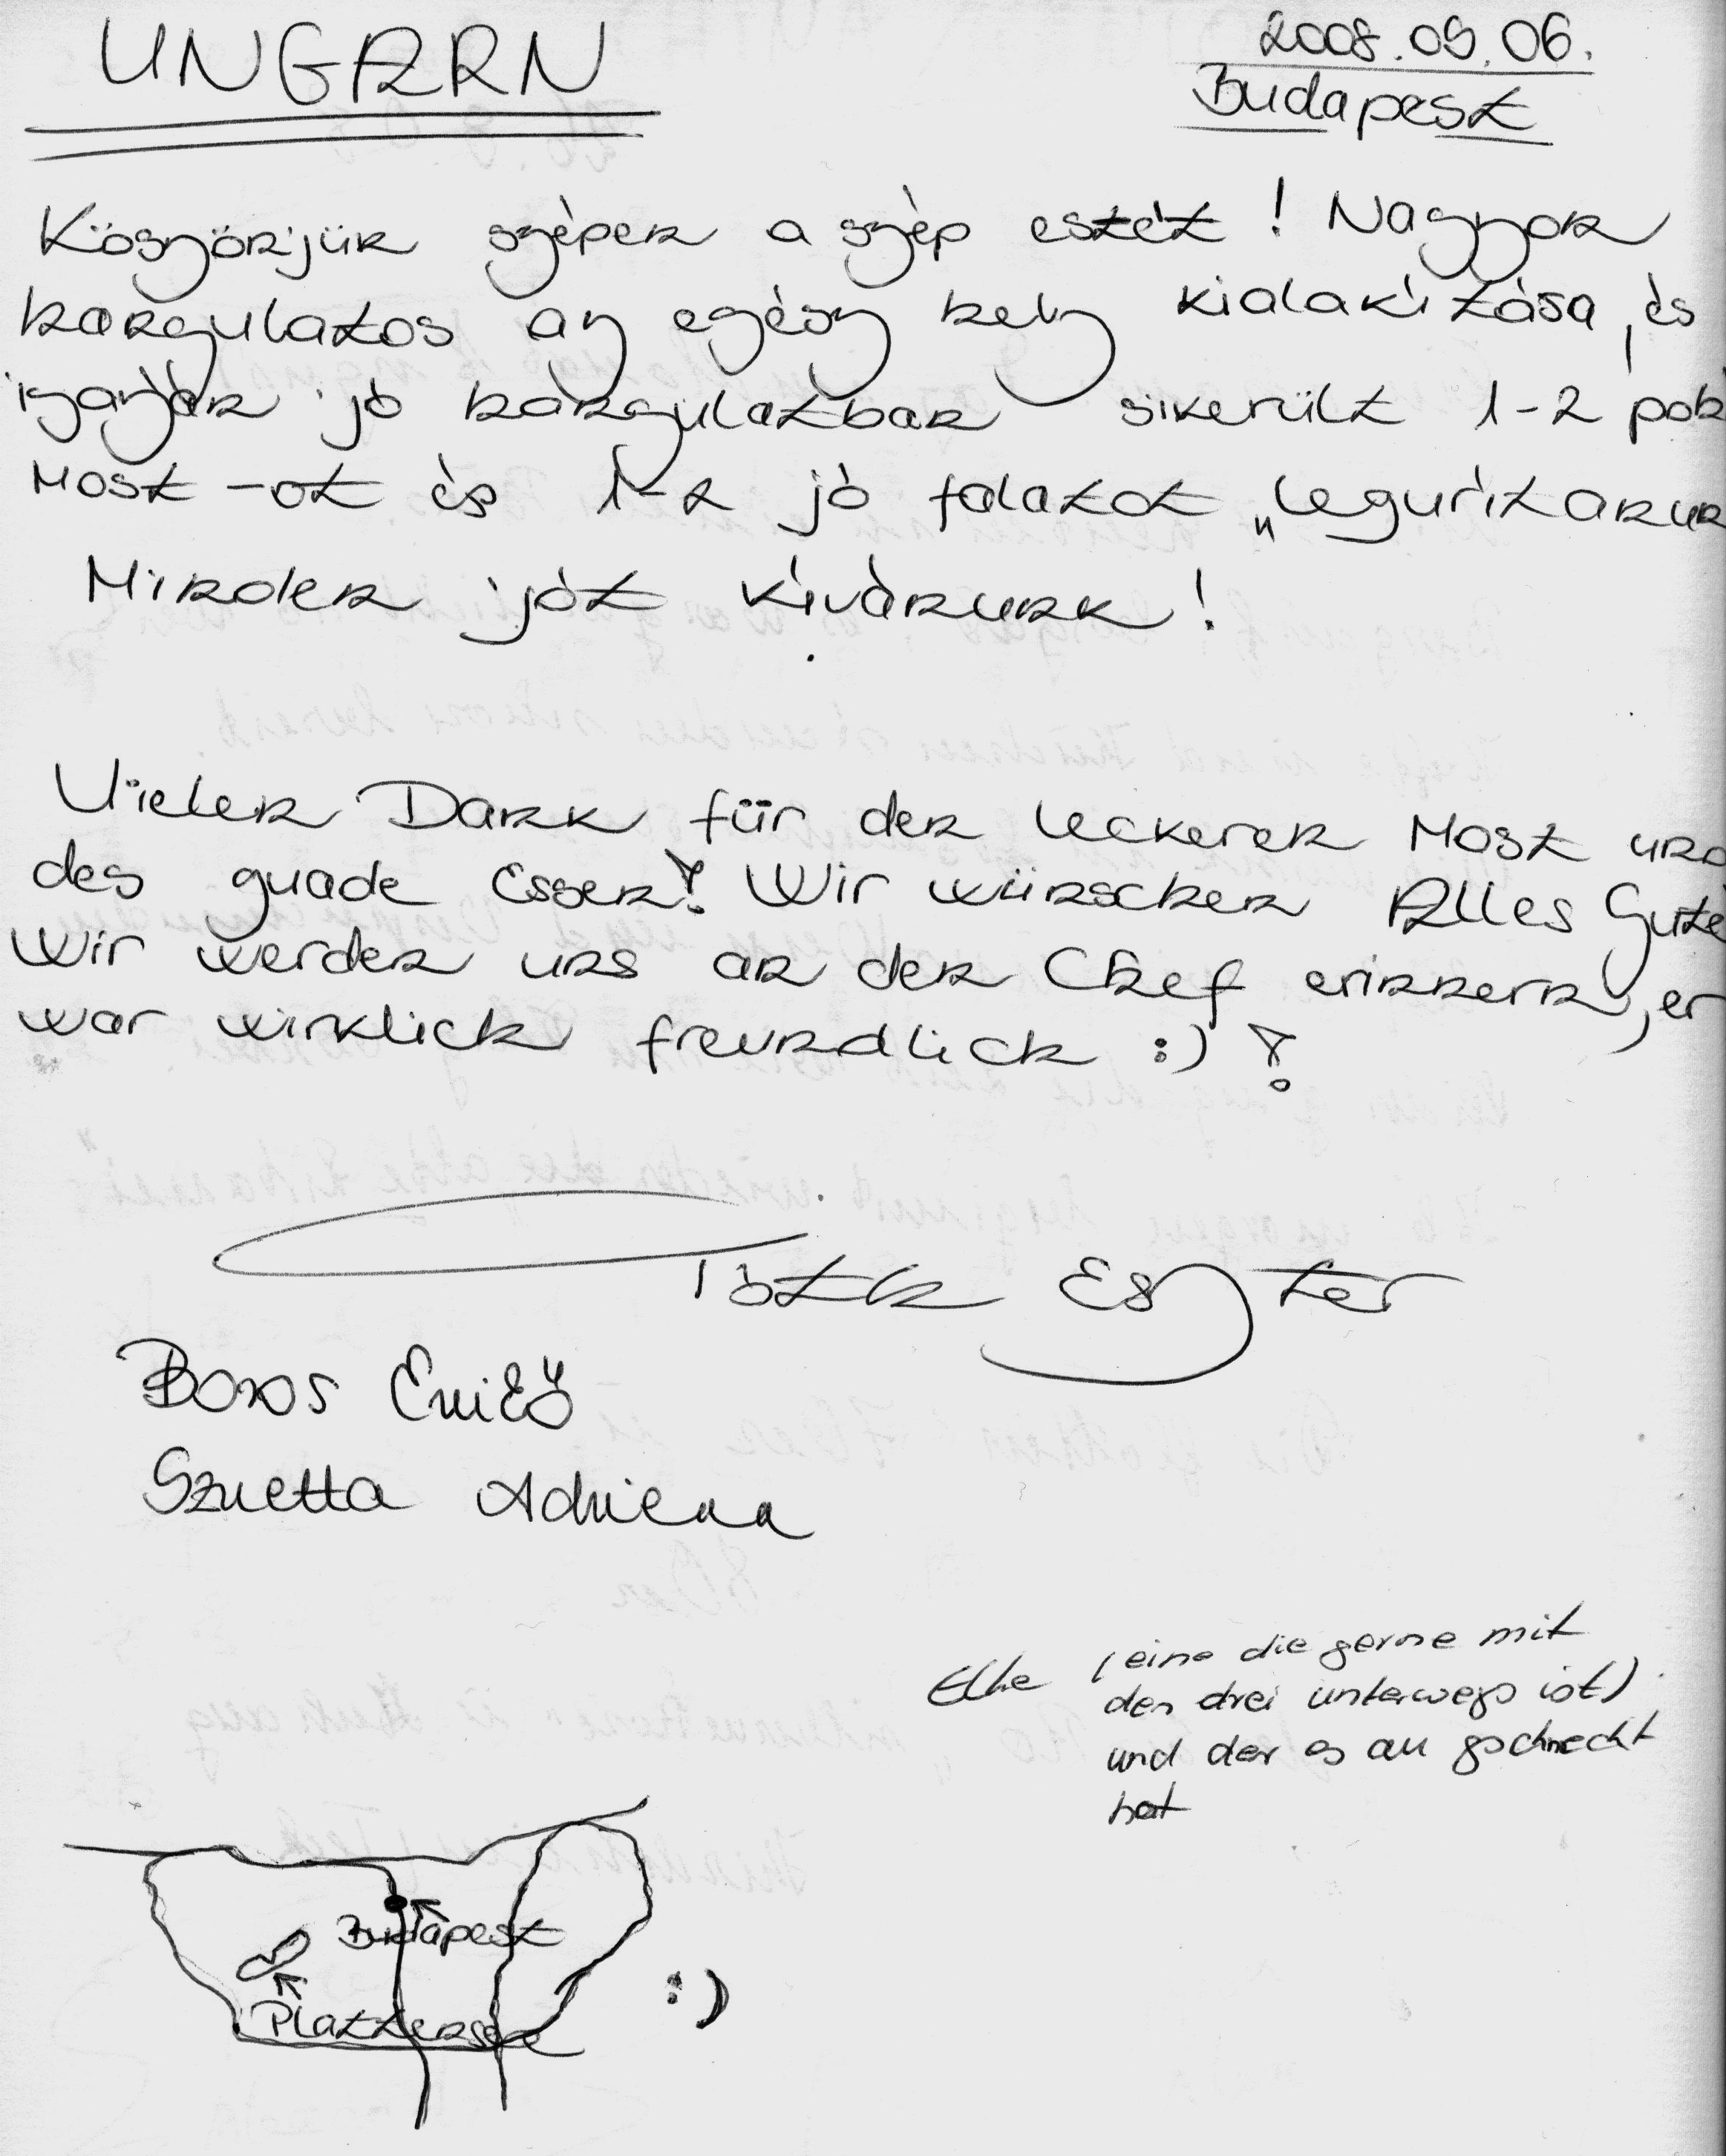 UNGARN
2008.09.06.
Budapest
Köszönjük szépen a szép estét! Nagyon
hangulatos az egész hely kialakítása, és
igazán jó hangulatban sikerült 1-2 poh
Most-ot és 1-2 jó falatot „legurítanun
Minden jót kívánunk!
Vielen Dank für den leckeren Most und
des guade Essen! Wir wünschen Alles Gute
Wir werden uns an den Chef erinnern, er
war wirklich freundlich :) !
Tóth Eszter
Boros Emilő
Sznetta Adrienn
Elke (eine die gerne mit
den drei unterwegs ist)
und der es au gschmeckt
hat
Budapest
Plattensee
:)